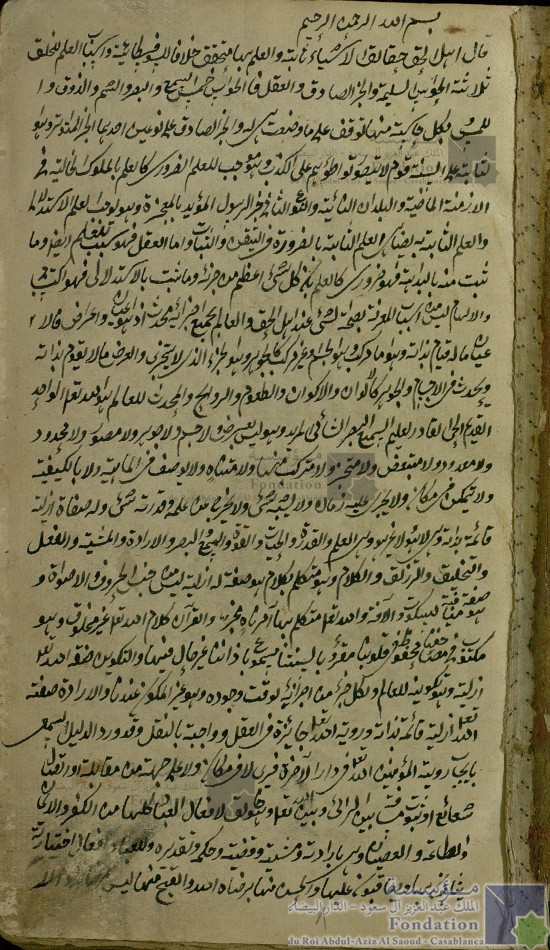 بسم الله الرحمن الرحيم
قال اهل الحق حقائق الاشياء ثابتة والعلم بها متحقق خلافا للسوفسطائية واسباب العلم للخلق
ثلاثة الحواس السليمة والخبر الصادق والعقل فالحواس خمس السمع والبصر والشم والذوق و ا
للمس وبكل حاسة منها توقف على ما وضعت هى له والخبر الصادق على نوعين احدهما الخبر المتواتر وهو
الثابت على السنة قوم لا يتصور تواطؤهم على الكذب وهو موجب للعلم الضرورى كالعلم بالملوك الخالية فى
الازمنة الماضية والبلدان النائية والنوع الثانى خبر الرسول المؤيد بالمعجزة وهو يوجب العلم الاستدلالى
والعلم الثابت به يضاهى العلم الثابت بالضرورة فى التيقن والثبات واما العقل فهو سبب للعلم ايضا وما
ثبت منه بالبداهة فهو ضرورى كالعلم بان كل شئ اعظم من جزئه وما ثبت بالاستدلال فهو اكتسابى
والالهام ليس من اسباب المعرفة بصحة الشئ عند اهل الحق والعالم بجميع اجزائه محدث اذ هو اعيان واعراض فالا
عيان ماله قيام بذاته وهو اما مركب وهو الجسم او غير مركب كالجوهر وهو الجزء الذى لا يتجزى والعرض ما لا يقوم بذاته
ويحدث فى الاجسام والجواهر كالالوان والاكوان والطعوم والروايح والمحدث للعالم هو الله تعالى الواحد
القديم الحى القادر العليم السميع البصير الشائى المريد وهو ليس بعرض ولا جسم ولا جوهر ولا مصور ولا محدود
ولا معدود ولا متبعض ولا متجز ولا متركب منها ولا متناه ولا يوصف فى الماهية ولا بالكيفية
ولا يتمكن فى مكان ولا يجرى عليه زمان ولا يشبهه شئ ولا يخرج من علمه وقدرته شئ وله صفات ازلية
قائمة بذاته وهى لا هو ولا غيره وهى العلم والقدرة والحيات والقوة والسمع والبصر والارادة والمشية والفعل
والتخليق والترزيق والكلام وهو متكلم بكلام هو صفة له ازلية ليس من جنس الحروف والاصوات و
هو صفة منافية للسكوت والآفة والله تعالى متكلم بها آمر ناه مخبر والقرآن كلام الله تعالى غير مخلوق وهو
مكتوب فى مصاحفنا محفوظ فى قلوبنا مقروء بالسنتنا مسموع باذاننا غير حال فيها والتكوين صفة الله تعالى
ازلية وهو تكوينه للعالم ولكل جزء من اجزائه لوقت وجوده وهو غير المكون عندنا والارادة صفة
الله تعالى ازلية قائمة بذاته ورؤية الله تعالى جائزة فى العقل وواجبة بالنقل وقد ورد الدليل السمعى
بايجاب روية المؤمنين الله تعالى فى دار الآخرة فيرى لا فى مكان ولا على جهة من مقابلة او اتصال
شعاع او ثبوت مسافة بين الرائى وبين الله تعالى والله تعالى خالق لافعال العباد كلها من الكفر والايمان
والطاعة والعصيان وهى بارادته ومشيته وقضيته وحكمه وتقديره وللعباد افعال اختيارية
يثابون بها ويعاقبون عليها والحسن منها برضاء الله والقبح منها ليس
مؤسسة
الملك عبد العزيز آل سعود - الدار البيضاء
Fondation
du Roi Abdul-Aziz Al Saoud - Casablanca